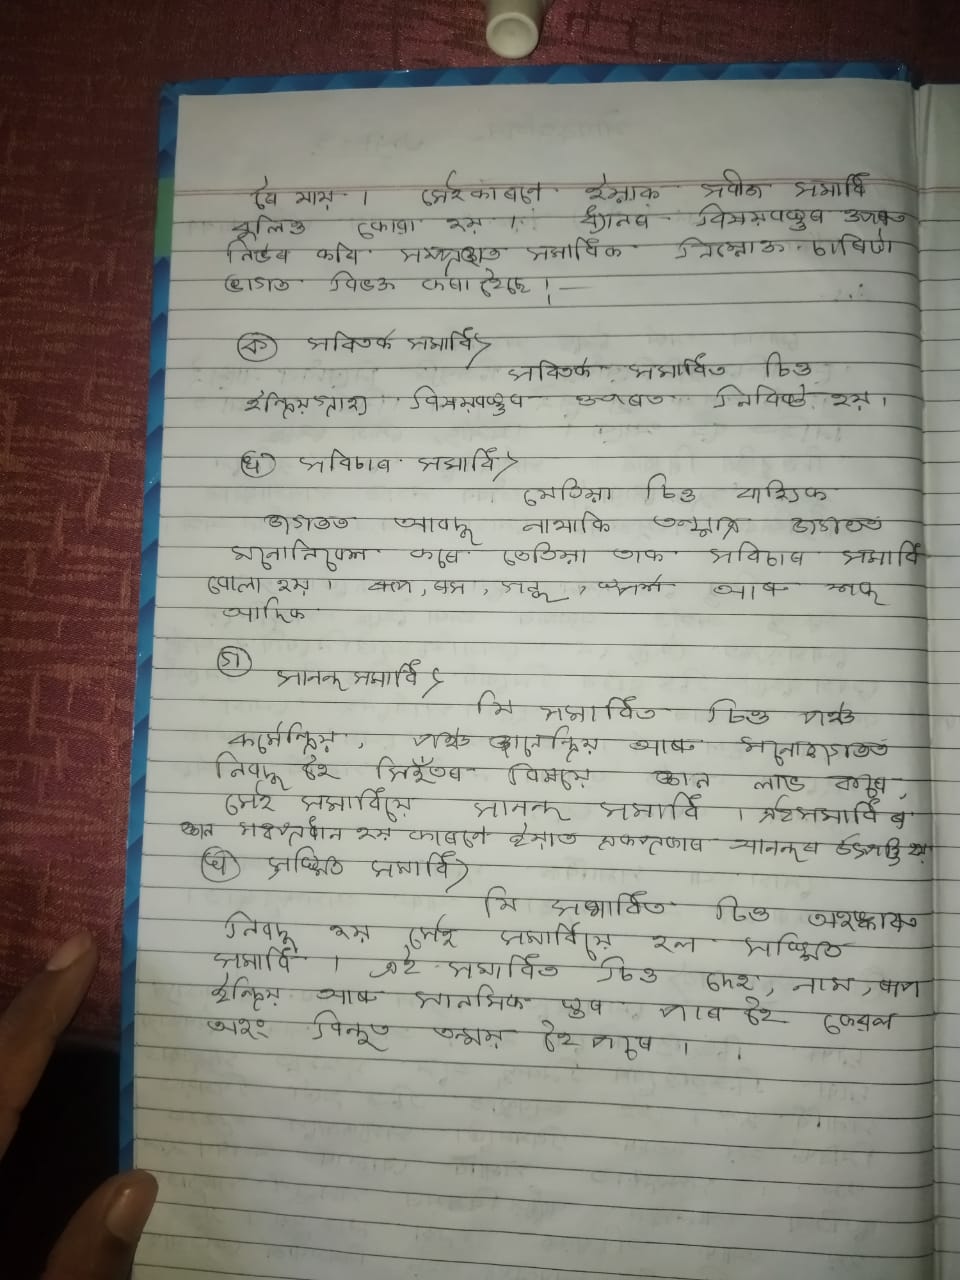 হৈ যায় । সেইকাৰণে ইয়াক সবীজ সমাধি
বুলিও কোৱা হয় । ধ্যানৰ বিষয়বস্তুৰ ওপৰত
নিৰ্ভৰ কৰি সম্প্ৰজ্ঞাত সমাধিক নিম্নোক্ত চাৰিটা
ভাগত বিভক্ত কৰা হৈছে ।—
ক সবিতৰ্ক সমাধি>
সবিতৰ্ক সমাধিত চিত্ত
ইন্দ্ৰিয়গ্ৰাহ্য বিষয়বস্তুৰ ওপৰত নিবিষ্ট হয় ।
খ সবিচাৰ সমাধি>
যেতিয়া চিত্ত বাহ্যিক
জগতত আবদ্ধ নাথাকি তন্মাত্ৰ জগতত
মনোনিবেশ কৰে তেতিয়া তাক সবিচাৰ সমাধি
বোলা হয় । ৰূপ, ৰস, গন্ধ, স্পৰ্শ আৰু শব্দ
আদিক
গ
সানন্দ সমাধি>
যি সমাধিত চিত্ত পঞ্চ
কৰ্মেন্দ্ৰিয়, পঞ্চ জ্ঞানেন্দ্ৰিয় আৰু মনোজগতত
নিবদ্ধ হৈ সিহঁতৰ বিষয়ে জ্ঞান লাভ কৰে,
সেই সমাধিয়ে সানন্দ সমাধি । এইসমাধিৰ
জ্ঞান সত্বপ্ৰধান হয় কাৰণে ইয়াত একপ্ৰকাৰ আনন্দৰ উৎপত্তি হয়
ঘ সস্মিত সমাধি>
যি সমাধিত চিত্ত অহংকাৰত
নিবদ্ধ হয় সেই সমাধিয়ে হল সস্মিত
সমাধি । এই সমাধিত চিত্ত দেহ, নাম, ৰূপ
ইন্দ্ৰিয় আৰু মানসিক স্তৰ পাৰ হৈ কেৱল
অহং বিন্দুত তন্ময় হৈ পৰে ।